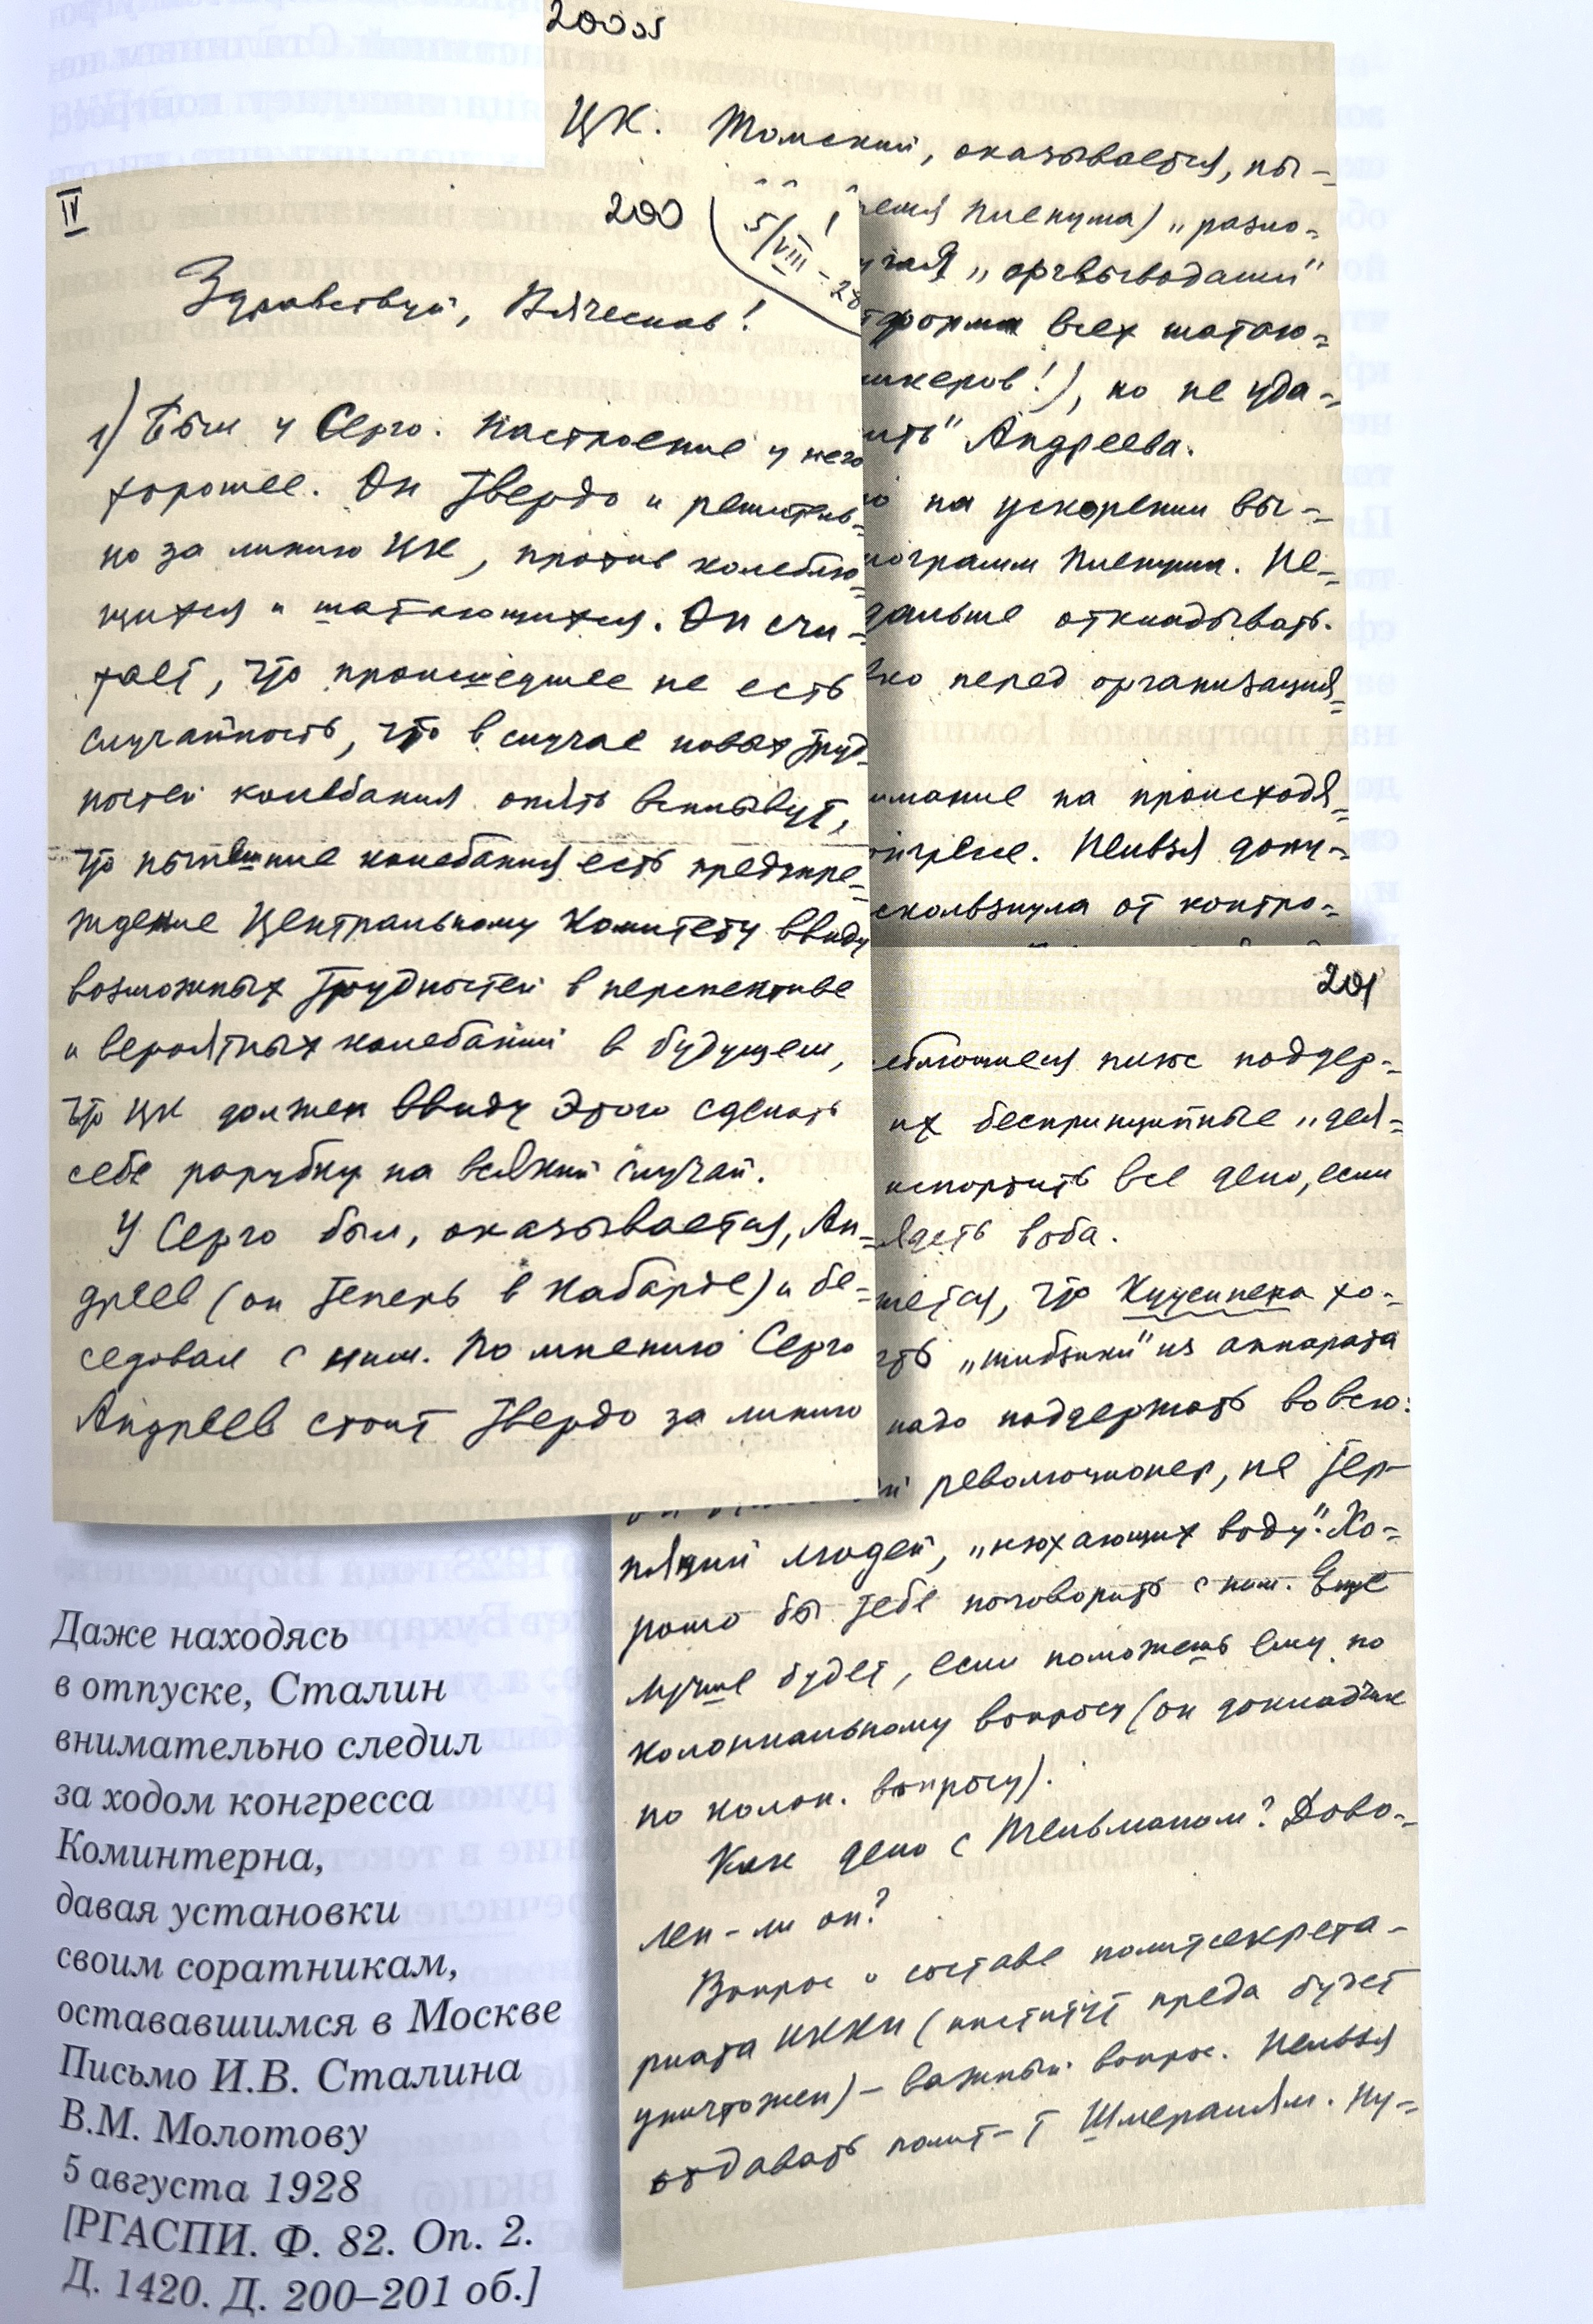 200об
ЦК. Томский, оказывается, пы-
Пленума) „разло-
„оргвыводами"
всех шатаю-
!), но не уда-
Андреева.
на ускорении вы-
Пленума. Не-
дальше откладывать.
перед организация-
на происходя-
Нельзя допу-
от контро-
IV
200
5/VIII-28
Здравствуй, Вячеслав!
1) Был у Серго. Настроение у него
хорошее. Он твердо и решитель-
но за линию ЦК, против колеблю-
щихся и шатающихся. Он счи-
тает, что происшедшее не есть
случайность, что в случае новых труд-
ностей колебания опять всплывут,
что нынешние колебания есть предупре-
ждение Центральному Комитету ввиду
возможных трудностей в перспективе
и вероятных колебаний в будущем,
что ЦК должен ввиду этого сделать
себе зарубку на всякий случай.
У Серго был, оказывается, Ан-
дреев (он теперь в Кабарде) и бе-
седовал с ним. По мнению Серго
Андреев стоит твердо за линию
201
поддер-
их беспринципные „дея-
испортить все дело, если
в оба.
что Куусинена хо-
„шибзики" из аппарата
надо поддержать вовсю:
революционер, не тер-
пящий людей, „нюхающих воду". Хо-
рошо бы тебе поговорить с ним. Еще
лучше будет, если поможешь ему по
колониальному вопросу (он докладчик
по колон. вопросу).
Как дело с Тельманом? Дово-
лен-ли он?
Вопрос о составе политсекрета-
риата ИККИ (институт преда будет
уничтожен) – важный вопрос. Нельзя
отдавать полит-т Шмералям. Ну-
Даже находясь
в отпуске, Сталин
внимательно следил
за ходом конгресса
Коминтерна,
давая установки
своим соратникам,
остававшимся в Москве
Письмо И.В. Сталина
В.М. Молотову
5 августа 1928
[РГАСПИ. Ф. 82. Оп. 2.
Д. 1420. Д. 200–201 об.]